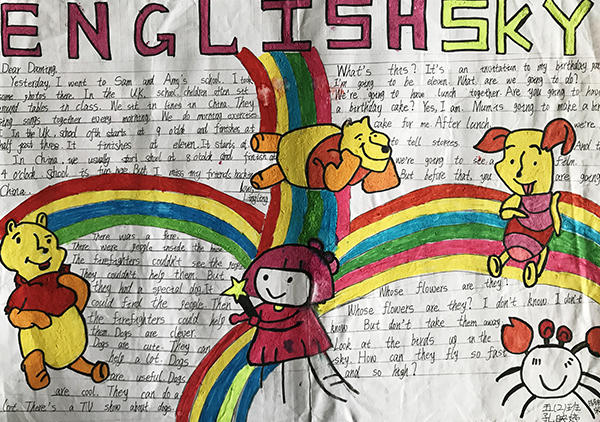 ENGLISH SKY
Dear Daming,
Yesterday, I went to Sam and Amy's school. I took
some photos there. In the UK. school children often set
round tables in class. We set in lines in China. They
sing songs together every morning. We do morning exercises
In the UK school ofth starts at 9 o'clo and finishes at
half past three. It finishes at eleven. It starts at
In China, we usually start shool at 8 o'clock and finish at
4 o'clock. School is fun here. But I miss my friends back
China.
What's this? It's an invitation to my birthday par
I'm going to be eleven. What are we going to do?
We're going to have lunch together. Are you going to have
a birthday cake? Yes, I am. Mum is going to make a bir
cake for me. After lunch, we're
to tell stories. And t
we're going to see a film.
But before that, you are going
There was a fire.
There were people inside the house
The firefighters couldn't see the people
They couldn't help them. But
they had a special dog. It
could find the people. Then
the firefighters could help
them. Dogs are clever.
Dogs are cute. They can
help a lot. Dogs
are useful. Dogs
are cool. They can do a
lot. There's a TV show about dogs.
Whose flowers are they?
Whose flowers are they? I don't know. I don't
know. But don't take them away.
Look at the birds up in the
sky. How can they fly so fast
and so high?
五(2)班